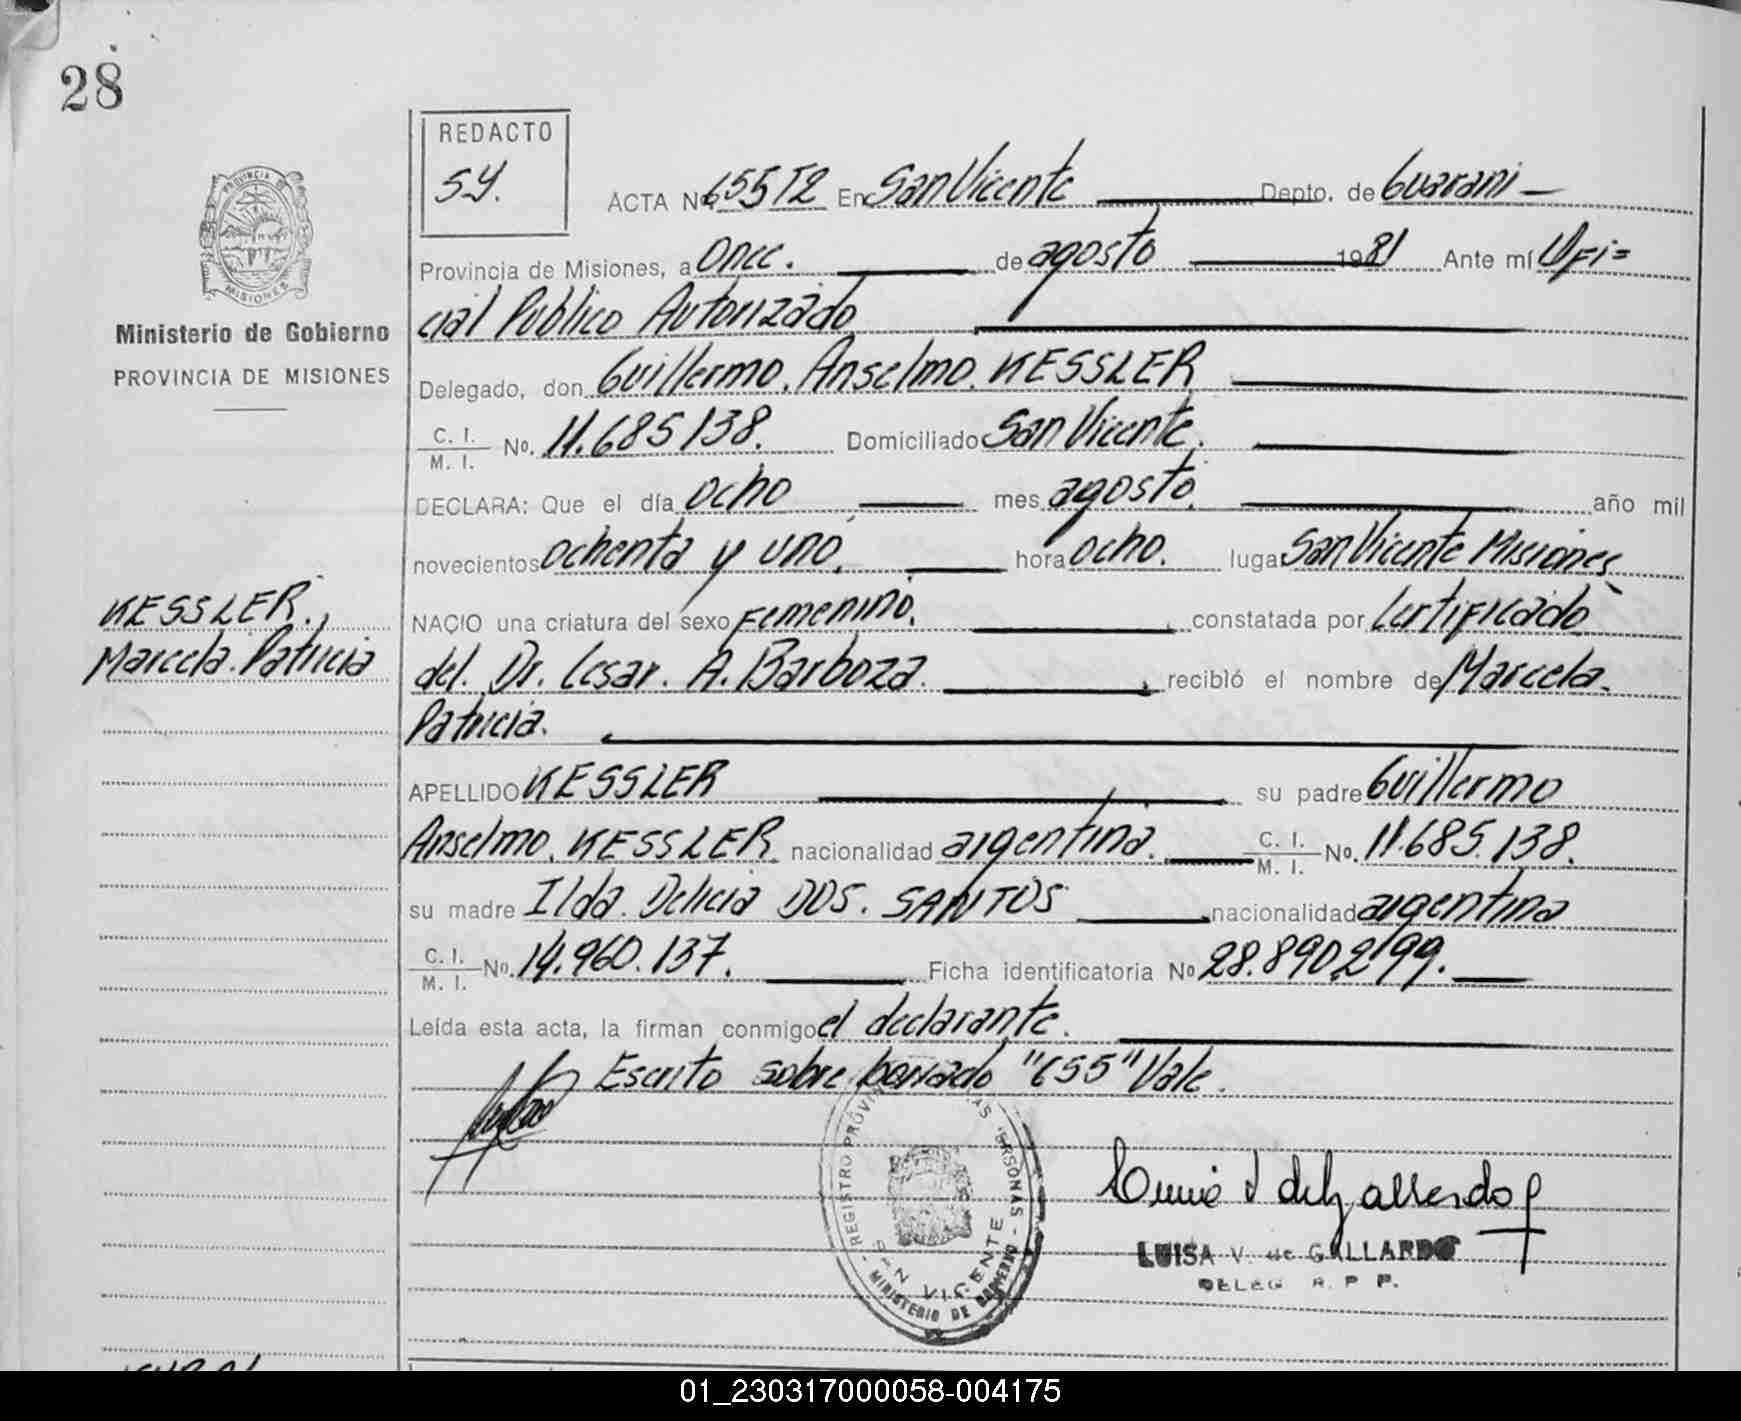 28
REDACTO
SY.
PROVINCIA DE
MISIONES
Ministerio de Gobierno
PROVINCIA DE MISIONES
ACTA Nº 655T2 En San Vicente Depto. de Guarani
Provincia de Misiones, a Once. de agosto 1981 Ante mí Ofi=
cial Publico Autorizado
Delegado, don Guillermo. Anselmo. KESSLER
C. I.
M. I. No. 11.685138. Domiciliado San Vicente.
DECLARA: Que el día ocho mes agosto. año mil
novecientos ochenta y uno. hora ocho. lugar San Vicente Misiones
NACIO una criatura del sexo Femenino. constatada por Certificado
del. Dr. Cesar. A. Barboza. recibió el nombre de Marcela.
Patricia.
KESSLER.,
Marcela. Patricia
APELLIDO KESSLER su padre Guillermo
Anselmo. KESSLER nacionalidad argentina. C. I.
M. I. No. 11.685.138.
su madre Ilda. Delicia DOS. SANTOS nacionalidad argentina
C. I.
M. I. No. 14.960.137. Ficha identificatoria No 28.890.299.
Leída esta acta, la firman conmigo el declarante.
Escrito sobre borrado "655" Vale.
REGISTRO PROVIN AS PERSONAS
SAN VICENTE
MINISTERIO DE GOBIERNO
LUISA V. de GALLARDO
DELEG R. P. P.
01_230317000058-004175